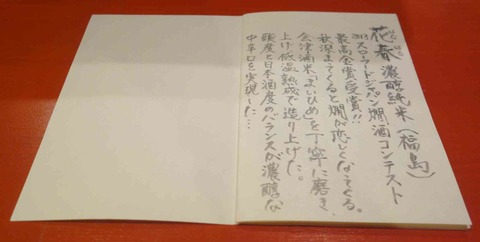 花春 濃醇純米(福島)
はなはる
2013スローフードジャパン燗酒コンテスト
最高金賞受賞!!
秋深まってくると燗が恋しくなってくる。
会津酒米「まいひめ」を丁寧に磨き、
上げ低温熟成で造り上げた。
酸度と日本酒度のバランスが濃醇な
中辛口を実現した…